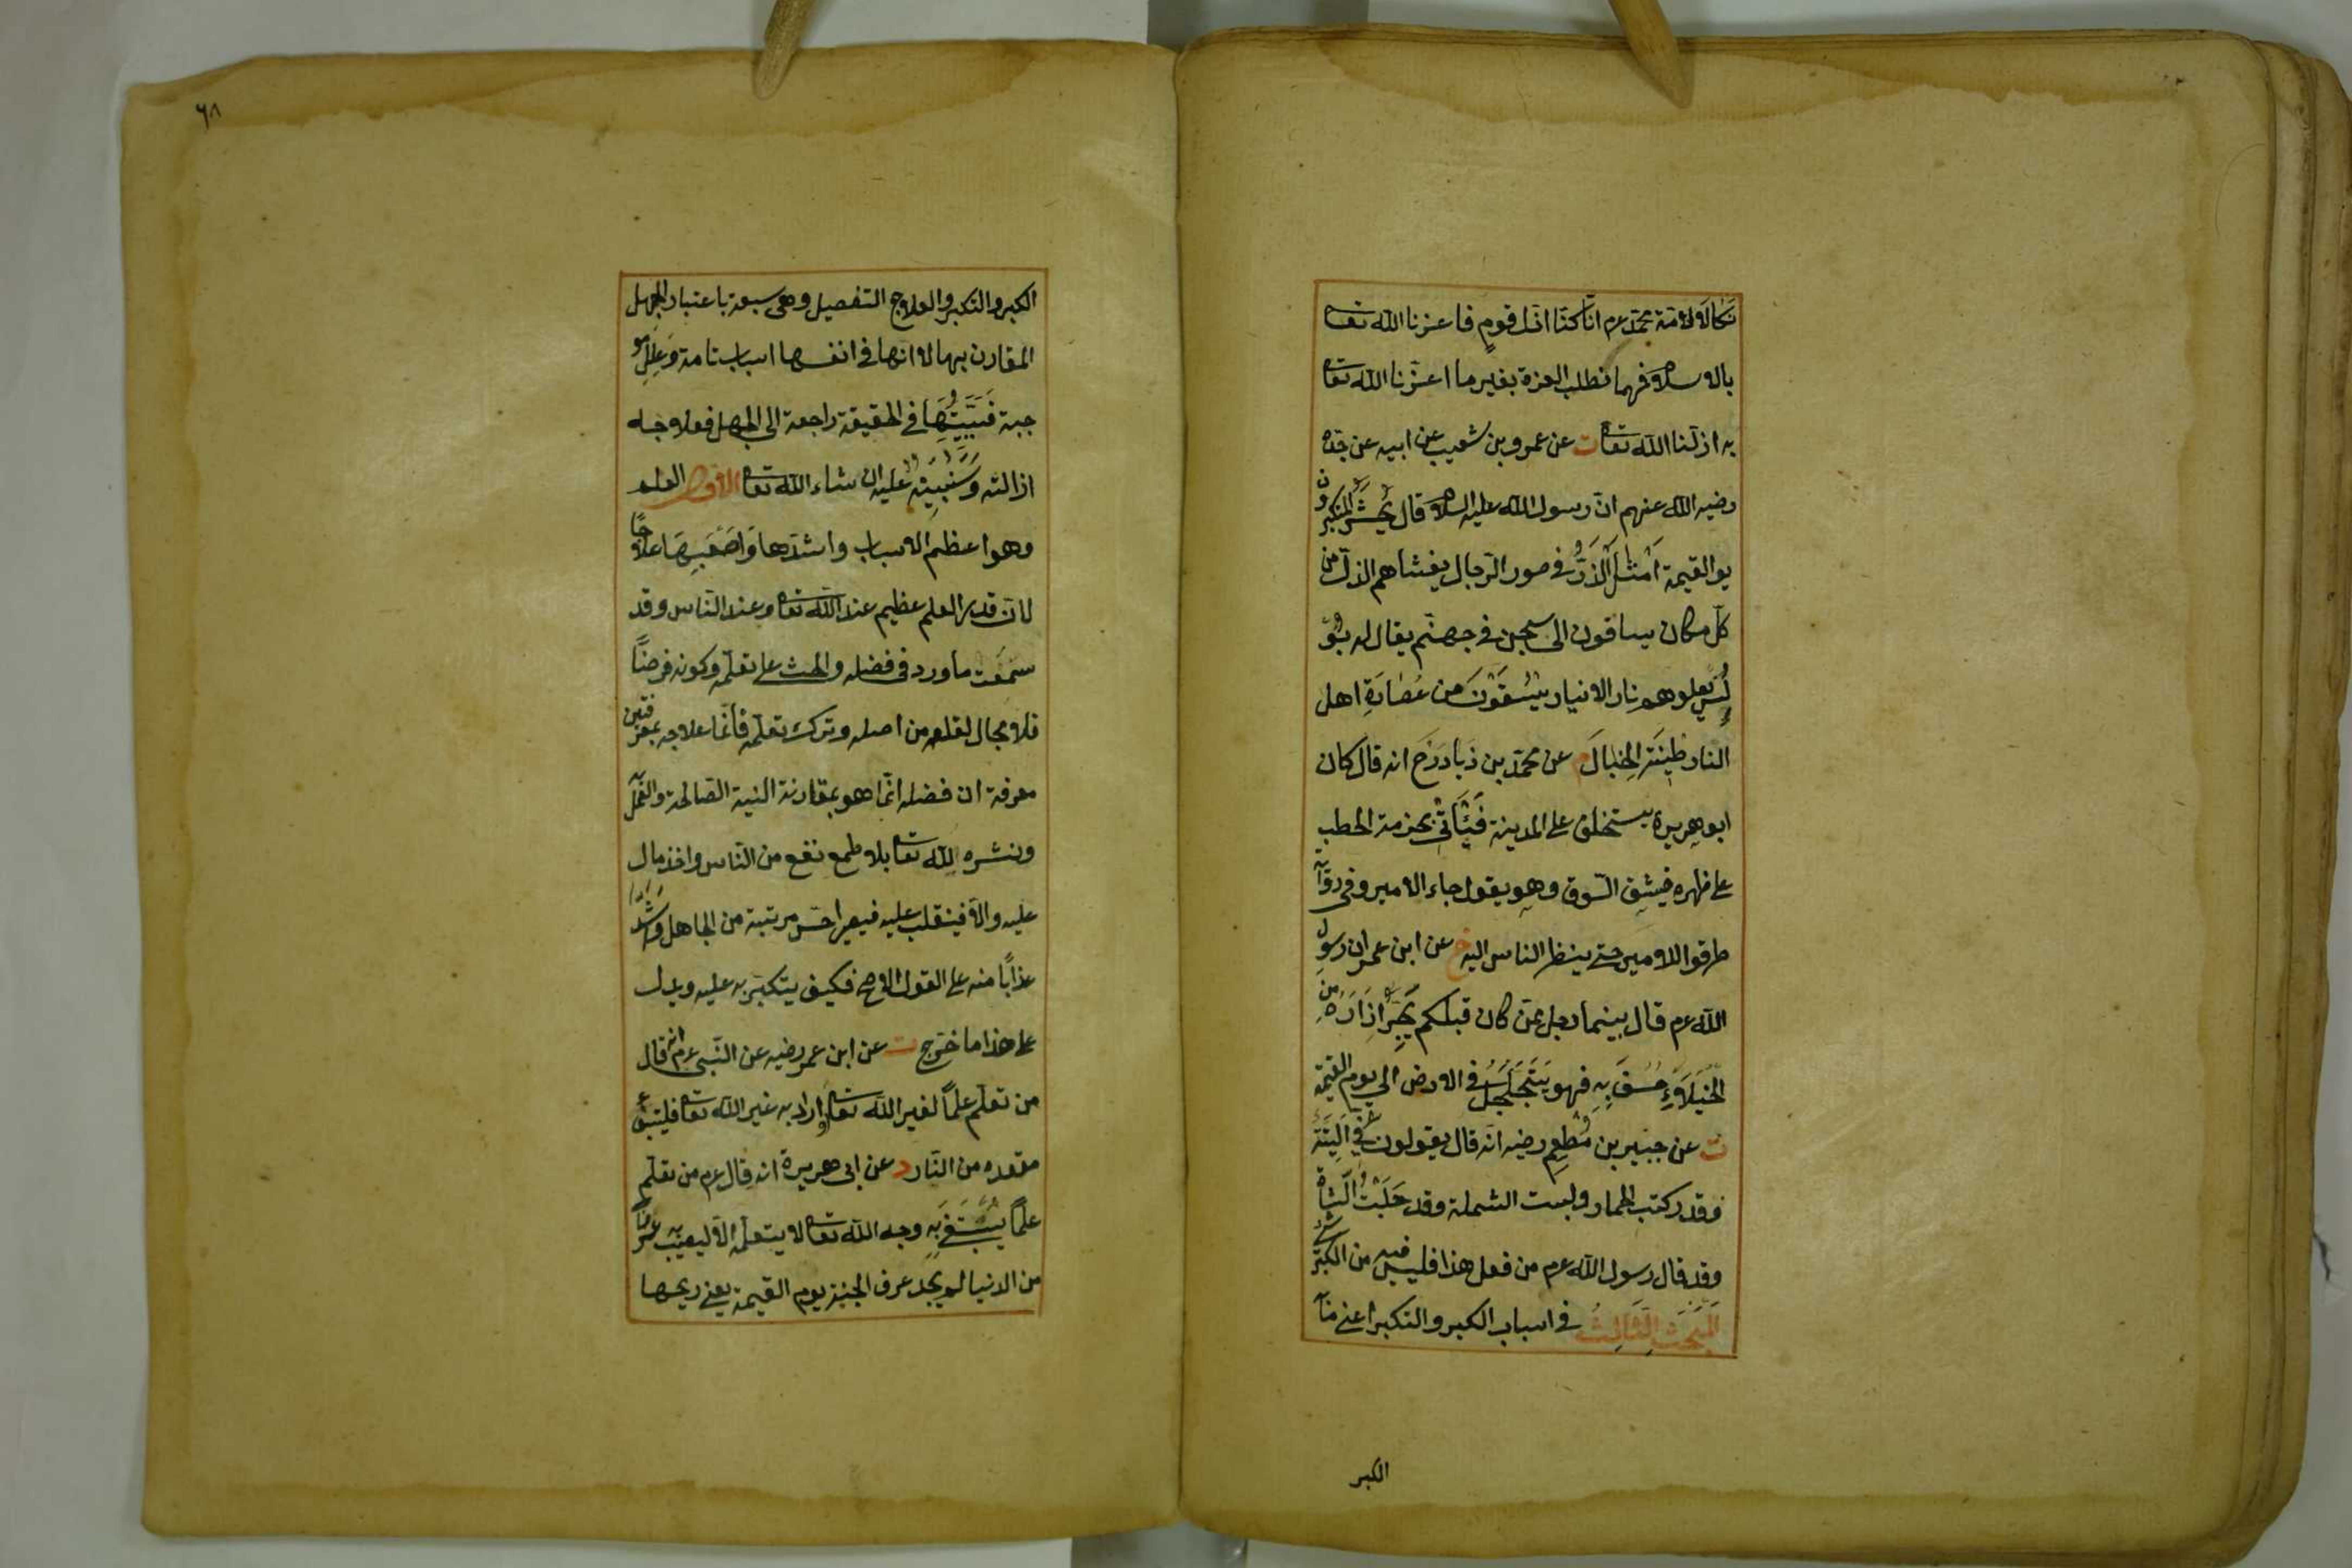 نكالا لامة محمد عم انا كنا اذل قوم فاعزنا الله تعا
بالاسلام فمهما نطلب العزة بغير ما اعزنا الله تعا
به اذلنا الله تعا ت عن عمرو بن شعيب عن ابيه عن جده
رضيه الله عنهم ان رسول الله عليه السلام قال يُحْشَرُ المتكبرون
يوم القيمة اَمْثَالَ الذَّرِّ في صور الرجال يغشاهم الذل من
كل مكان يساقون الى سجن في جهنم يقال له بو
لُسَ يعلوهم نار الانيار يُسْقَوْنَ من عُصَارَةِ اهل
النار طِينَةَ الْخَبَالِ م عن محمد بن زياد رَحَ انه قال كان
ابو هريرة يستخلف على المدينة فَيَأْتِي بحزمة الحطب
على ظهره فيشق السوق وهو يقول جاء الامير وفي رواية
طرقوا للامير حتى ينظر الناس اليه خ عن ابن عمر ان رسول
الله عم قال بينما رجل ممن كان قبلكم يَجُرُّ اِزَارَهُ من
الْخُيَلَاءِ خُسِفَ بِهِ فهو يَتَجَلْجَلُ في الارض الى يوم القيمة
ت عن جبير بن مُطْعِمٍ رضيه انه قال يقولون فِيَّ التِّيهُ
وقد ركبت الحمار ولبست الشملة وقد حَلَبْتُ الشَّاةَ
وقد قال رسول الله عم من فعل هذا فليس فيه من الكبر شئ
المَبْحَثُ الثَّالِثُ في اسباب الكبر والتكبر اعني منا
الكبر
٦٨
الكبر والتكبر والعلاج التفصيل وهي سبعة باعتبار الجهل
المقارن بها لا انها في انفسها اسباب تامة وَعِلَل مو
جبة فَسَبَبِيَّتُهَا في الحقيقة راجعة الى الجهل فعلاجه
ازالته وَسَنُبَيِّنُهُ عليه ان شاء الله تعا الاول العلم
وهو اعظم الاسباب واشدها وَاَصْعَبُهَا علاجًا
لان قدر العلم عظيم عند الله تعا وعند الناس وقد
سَمِعْتَ ما ورد في فضله والحث على تعلمه وكونه فرضًا
فلا مجال لقلعه من اصله وترك تعلمه فانما علاجه بمعرفتين
معرفة ان فضله انما هو بمقارنة النية الصالحة والعمل به
ونشره لله تعا بلا طمع نفع من الناس واخذ مال
عليه والا فينقلب عليه فيصير اخس مرتبة من الجاهل وَاَشَدَّ
عذابًا منه على القول الاصح فكيف يتكبر به عليه ويدل
على هذا ما خرج ت عن ابن عمر رضيه عن النبي عم انه قال
من تعلم علمًا لغير الله تعا او اراد به غير الله تعا فليتبوء
مقعده من النار د عن ابي هريرة انه قال عم من تعلم
علمًا يُبْتَغَى بِهِ وجه الله تعا لا يتعلمه الا ليصيب به عرضًا
من الدنيا لم يجد عرف الجنة يوم القيمة يعني ريحها